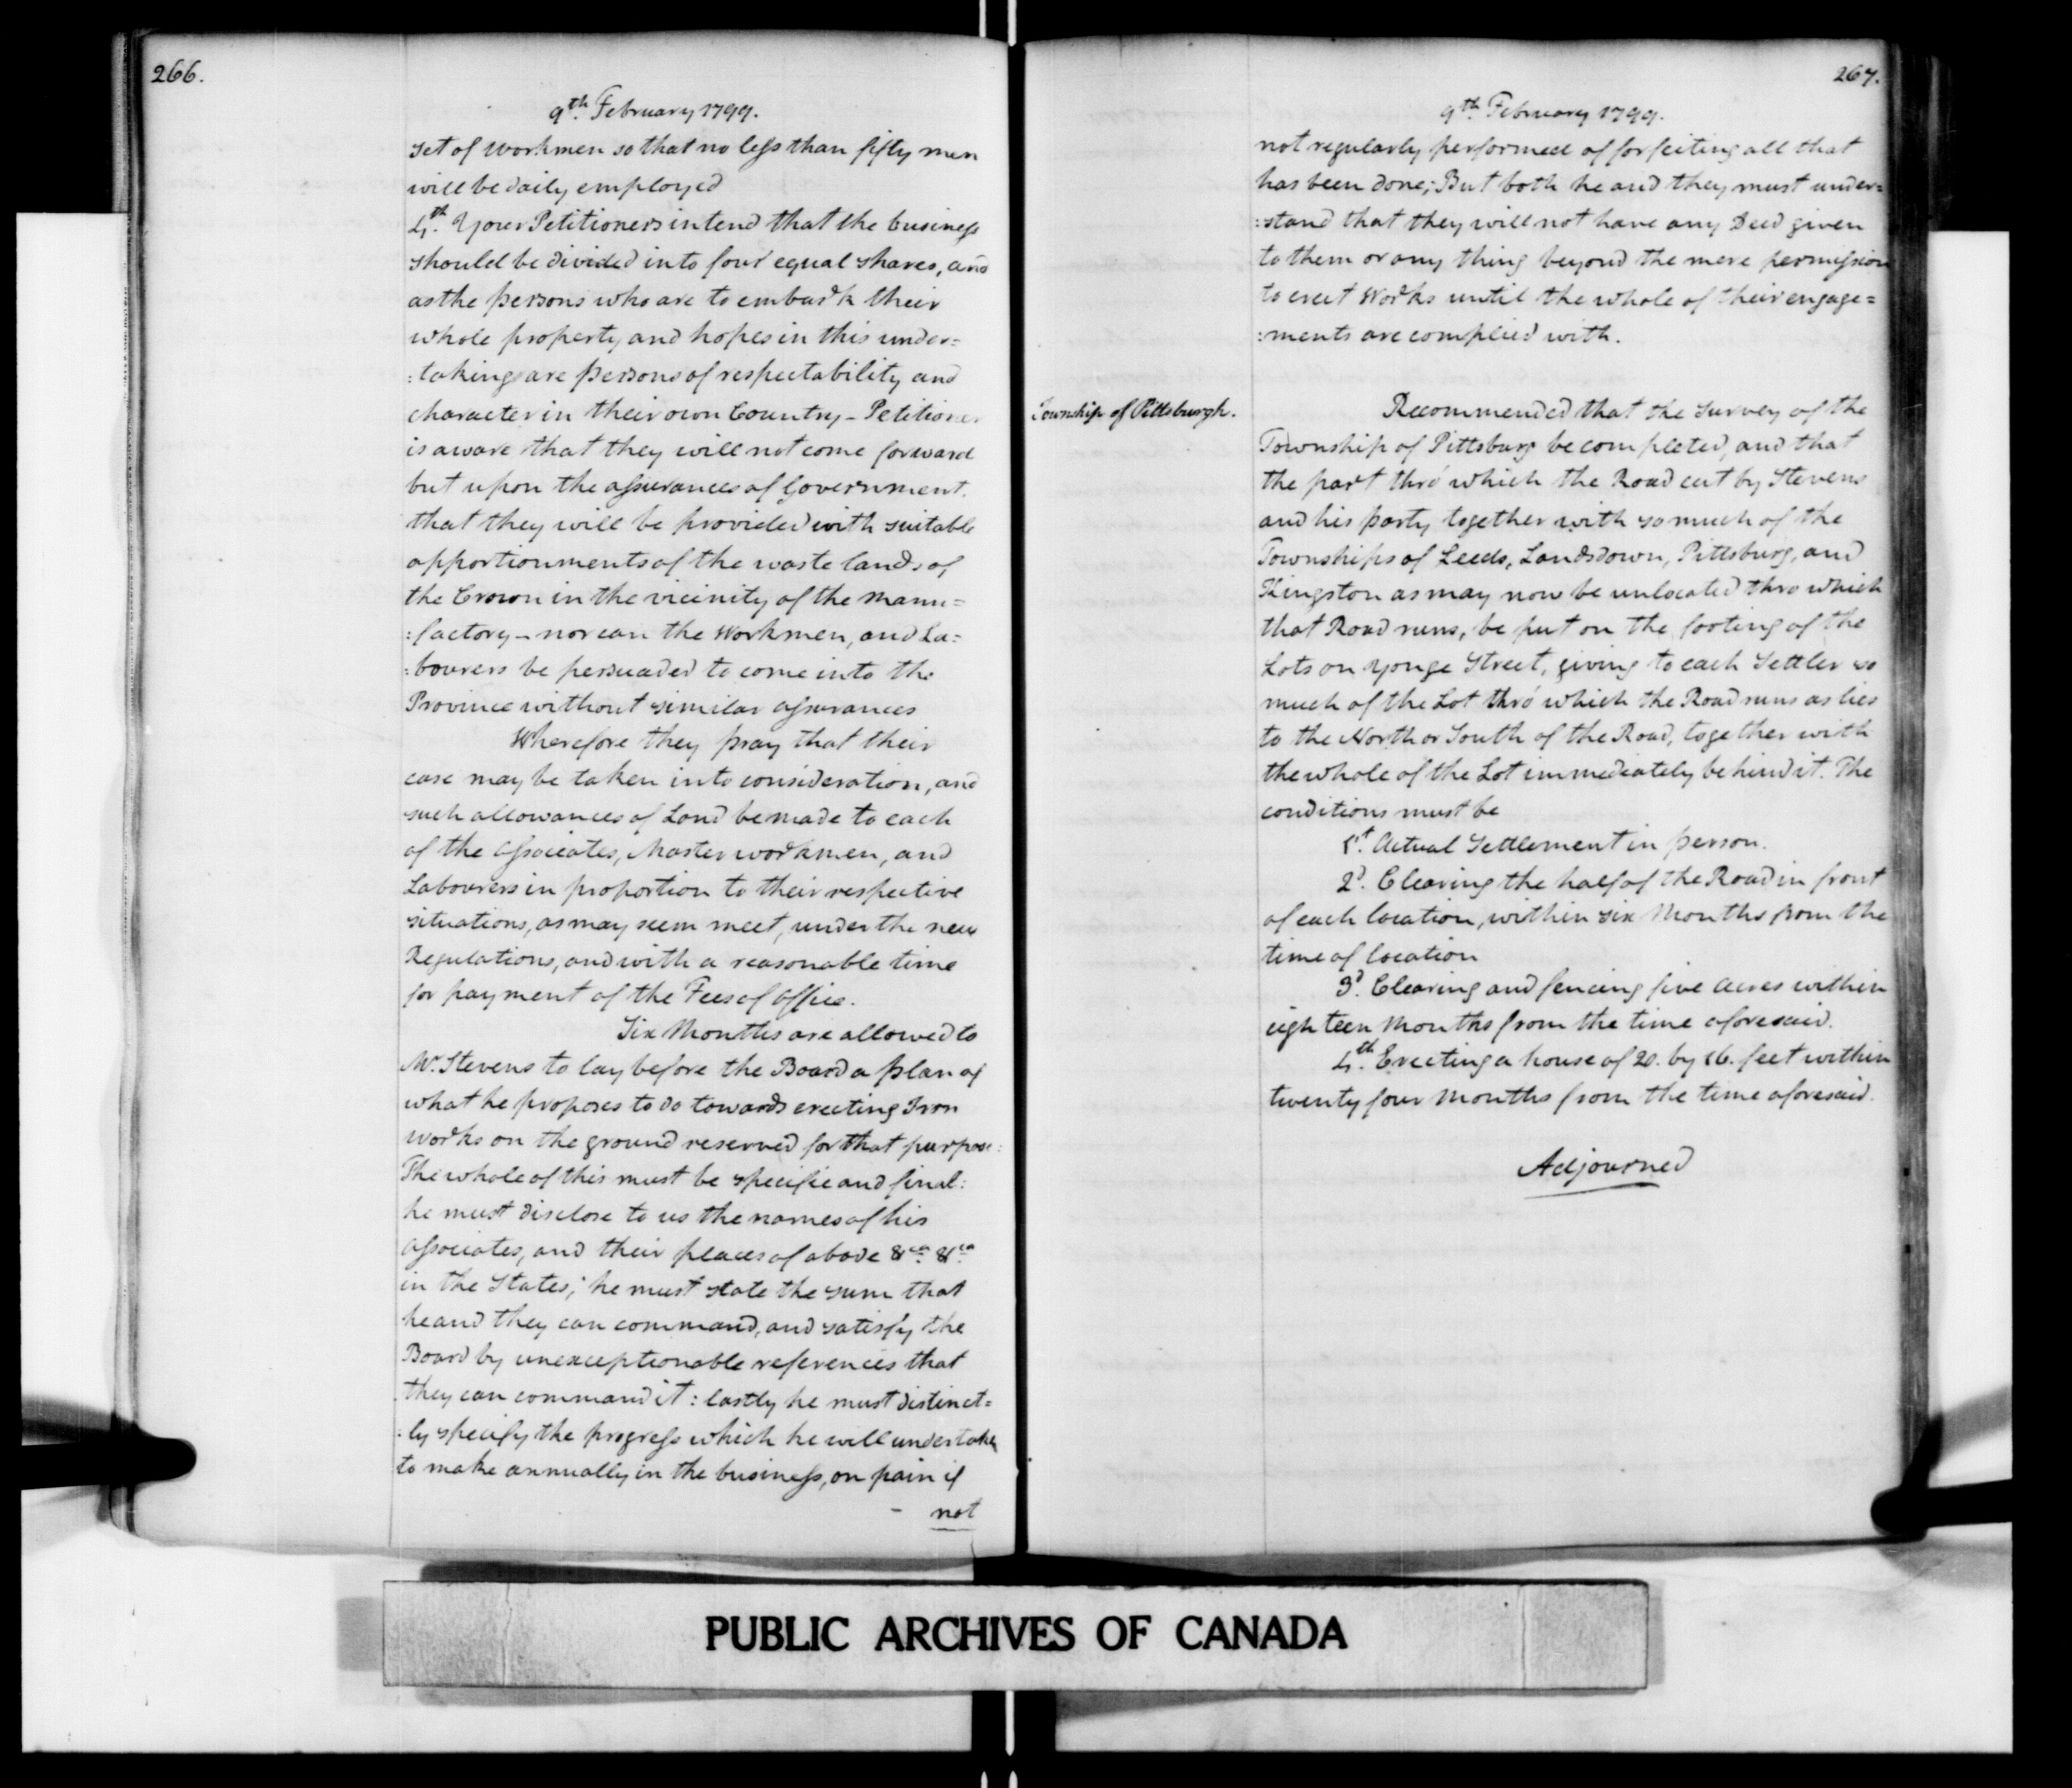 266.
9th. February 1799.
set of workmen so that no less than fifty men
will be daily employed
4th. Your Petitioners intend that the business
should be divided into four equal shares, and
as the persons who are to embark their
whole property and hopes in this under=
:taking are persons of respectability and
character in their own Country - Petitioner
is aware that they will not come forward
but upon the assurances of Government.
that they will be provided with suitable
apportionments of the waste lands of
the Crown in the vicinity of the manu=
:factory - nor can the Workmen, and La=
:bourers be persuaded to come into the
Province without similar assurances
Wherefore they pray that their
case may be taken into consideration, and
such allowances of Land be made to each
of the associates, Master workmen, and
Labourers in proportion to their respective
situations, as may seem meet, under the new
Regulations, and with a reasonable time
for payment of the Fees of office.
Six Months are allowed to
Mr. Stevens to lay before the Board a plan of
what he proposes to do towards erecting Iron
works on the ground reserved for that purpose:
The whole of this must be specific and final:
he must disclose to us the names of his
associates, and their places of abode &ca. &ca.
in the States; he must state the sum that
he and they can command, and satisfy the
Board by unexceptionable references that
they can command it: lastly he must distinct=
:ly specify the progress which he will undertake
to make annually in the business, on pain if
- not
267.
9th. February 1799.
not regularly performed of forfeiting all that
has been done; But both he and they must under=
:stand that they will not have any Deed given
to them or any thing beyond the mere permission
to erect Works until the whole of their engage=
:ments are complied with.
Township of Pittsburgh.
Recommended that the Survey of the
Township of Pittsburg be completed, and that
the part thro' which the Road cut by Stevens
and his party together with so much of the
Townships of Leeds, Landsdown, Pittsburg, and
Kingston as may now be unlocated thro which
that Road runs, be put on the footing of the
Lots on Yonge Street, giving to each Settler so
much of the Lot thro' which the Road runs as lies
to the North or South of the Road, together with
the whole of the Lot immediately behind it. The
conditions must be
1st. Actual Settlement in person.
2d. Clearing the half of the Road in front
of each location, within six Months from the
time of location
3d. Clearing and fencing five Acres within
eighteen Months from the time aforesaid.
4th. Erecting a house of 20. by 16. feet within
twenty four Months from the time aforesaid.
Adjourned
PUBLIC ARCHIVES OF CANADA